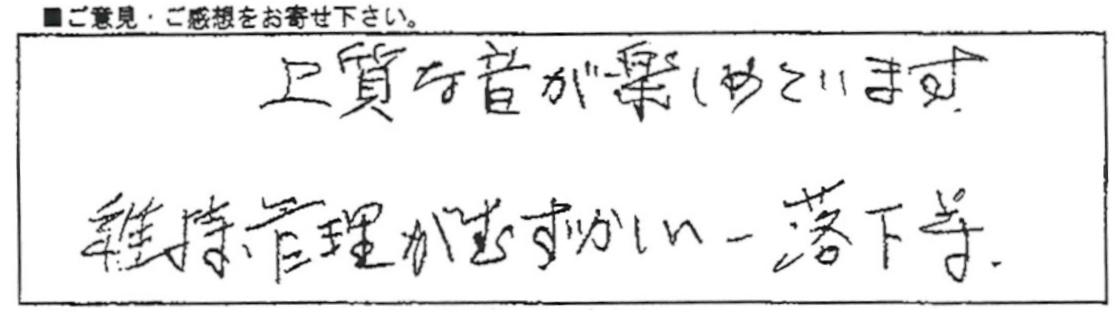 ■ご意見・ご感想をお寄せ下さい。
上質な音が楽しめています
維持管理がむずかしい－落下等.